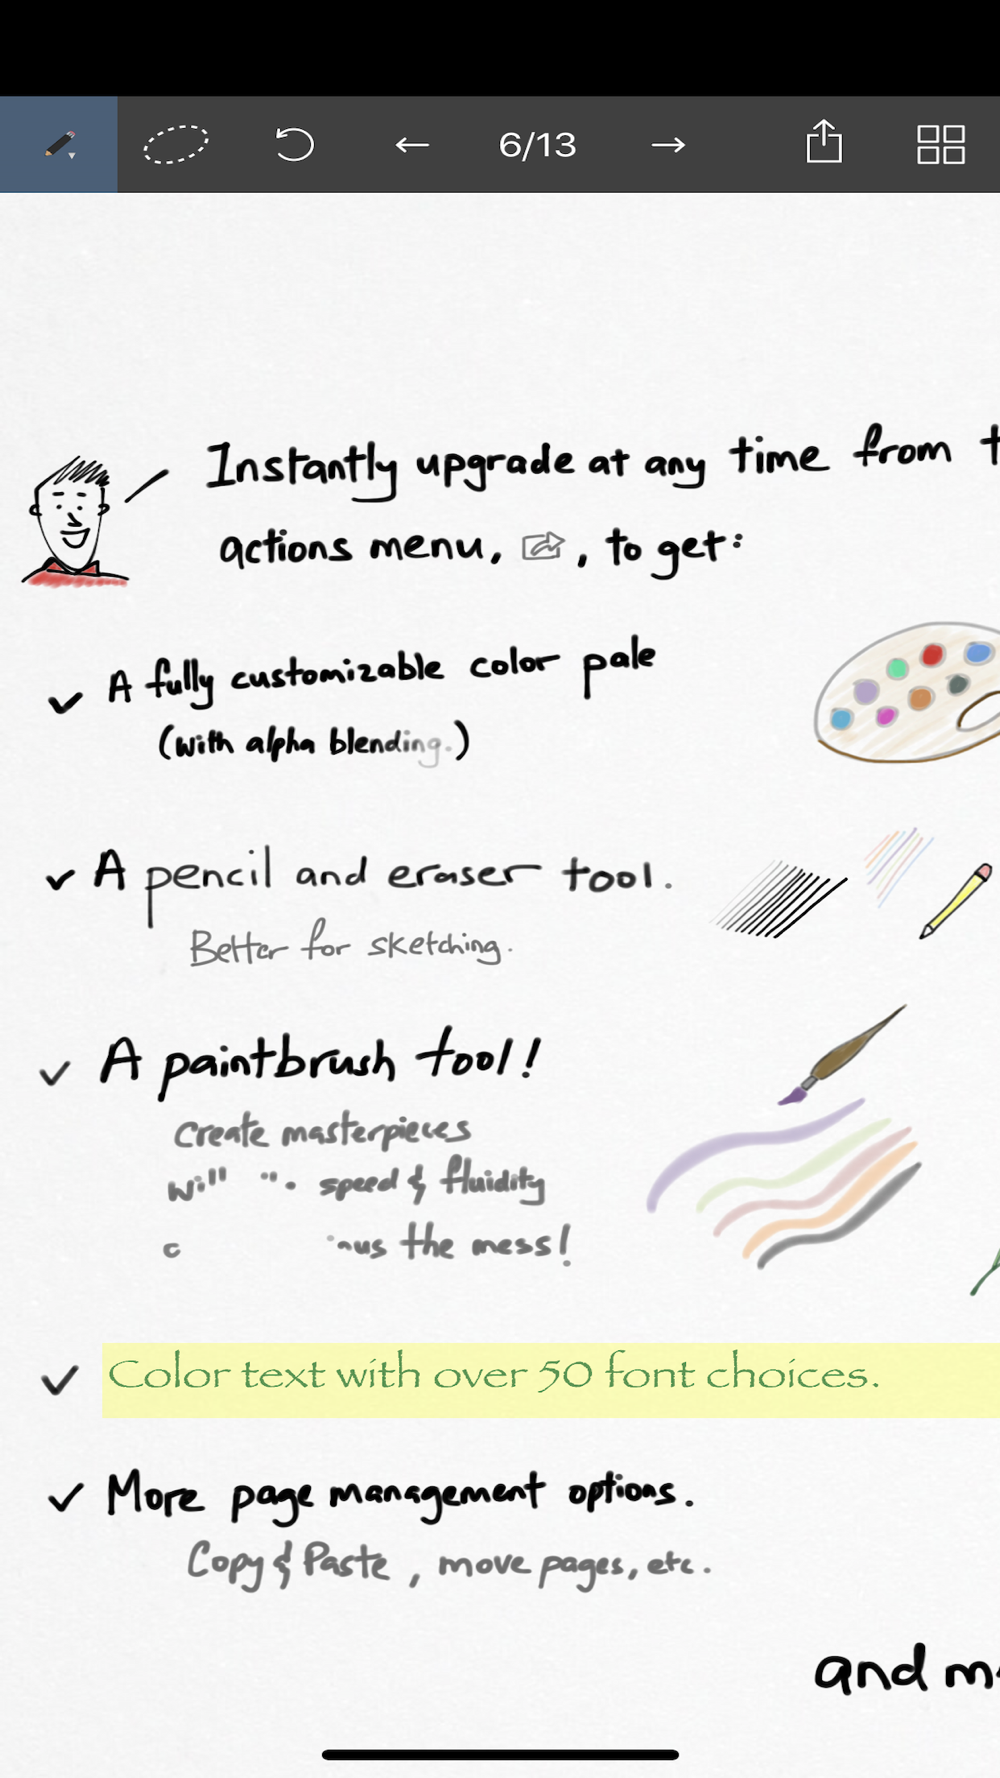 6/13
Instantly upgrade at any time from t
actions menu, , to get:
A fully customizable color pale
(with alpha blending.)
A pencil and eraser tool.
Better for sketching.
A paintbrush tool!
Create masterpieces
speed & fluidity
the mess!
Color text with over 50 font choices.
More page management options.
Copy & Paste, move pages, etc.
and m